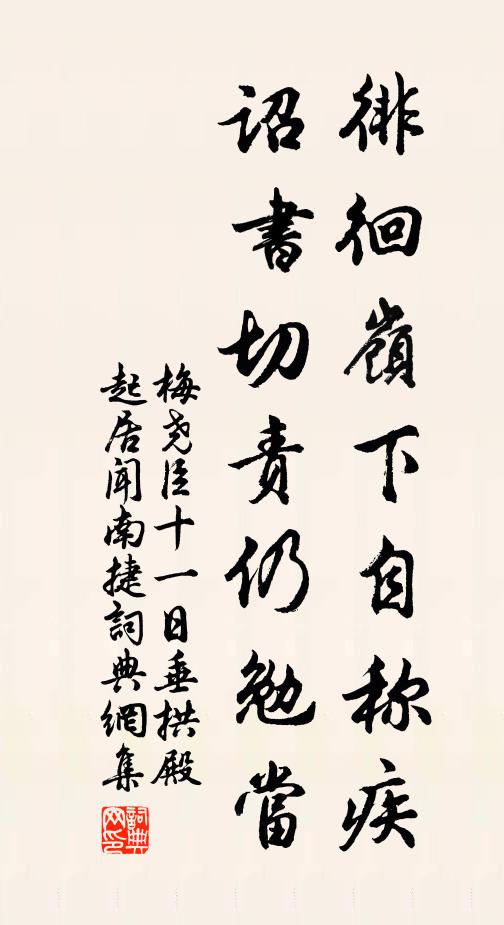 徘徊嶺下自称疾
詔書切責仍勉當
梅尧臣十一日垂拱殿
起居聞南捷詞典網集
詞典
网印